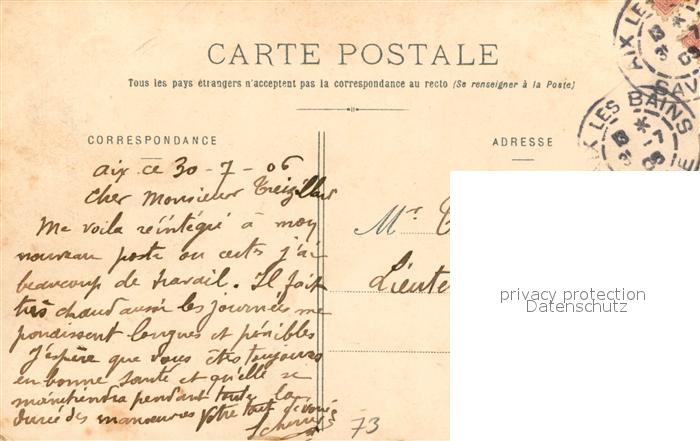 CARTE POSTALE
Tous les pays étrangers n'acceptent pas la correspondance au recto (Se renseigner à la Poste)
CORRESPONDANCE
ADRESSE
AIX LES BAINS
SAV
Aix ce 30-7-06
Cher Monsieur
Me voila réintégré à mon
nouveau poste ou certes j'ai
beaucoup de travail. Il fait
très chaud aussi les journées me
paraissent longues et pénibles
J'espère que vous êtes toujours
en bonne santé et qu'elle se
maintiendra pendant toute la
durée des manoeuvres Votre tout dévoué
Mr
Lieute
privacy protection
Datenschutz
73